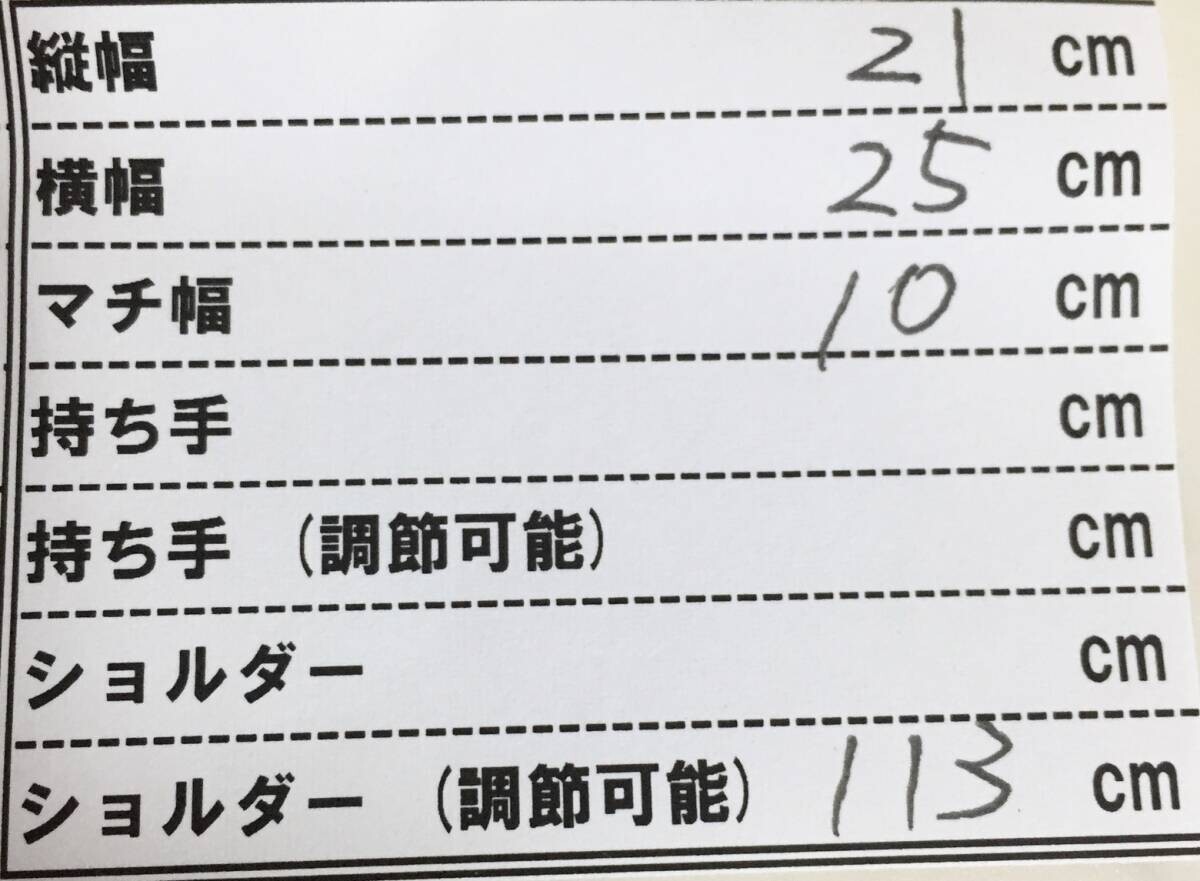 縦幅 21 cm
横幅 25 cm
マチ幅 10 cm
持ち手 cm
持ち手 (調節可能) cm
ショルダー cm
ショルダー (調節可能) 113 cm